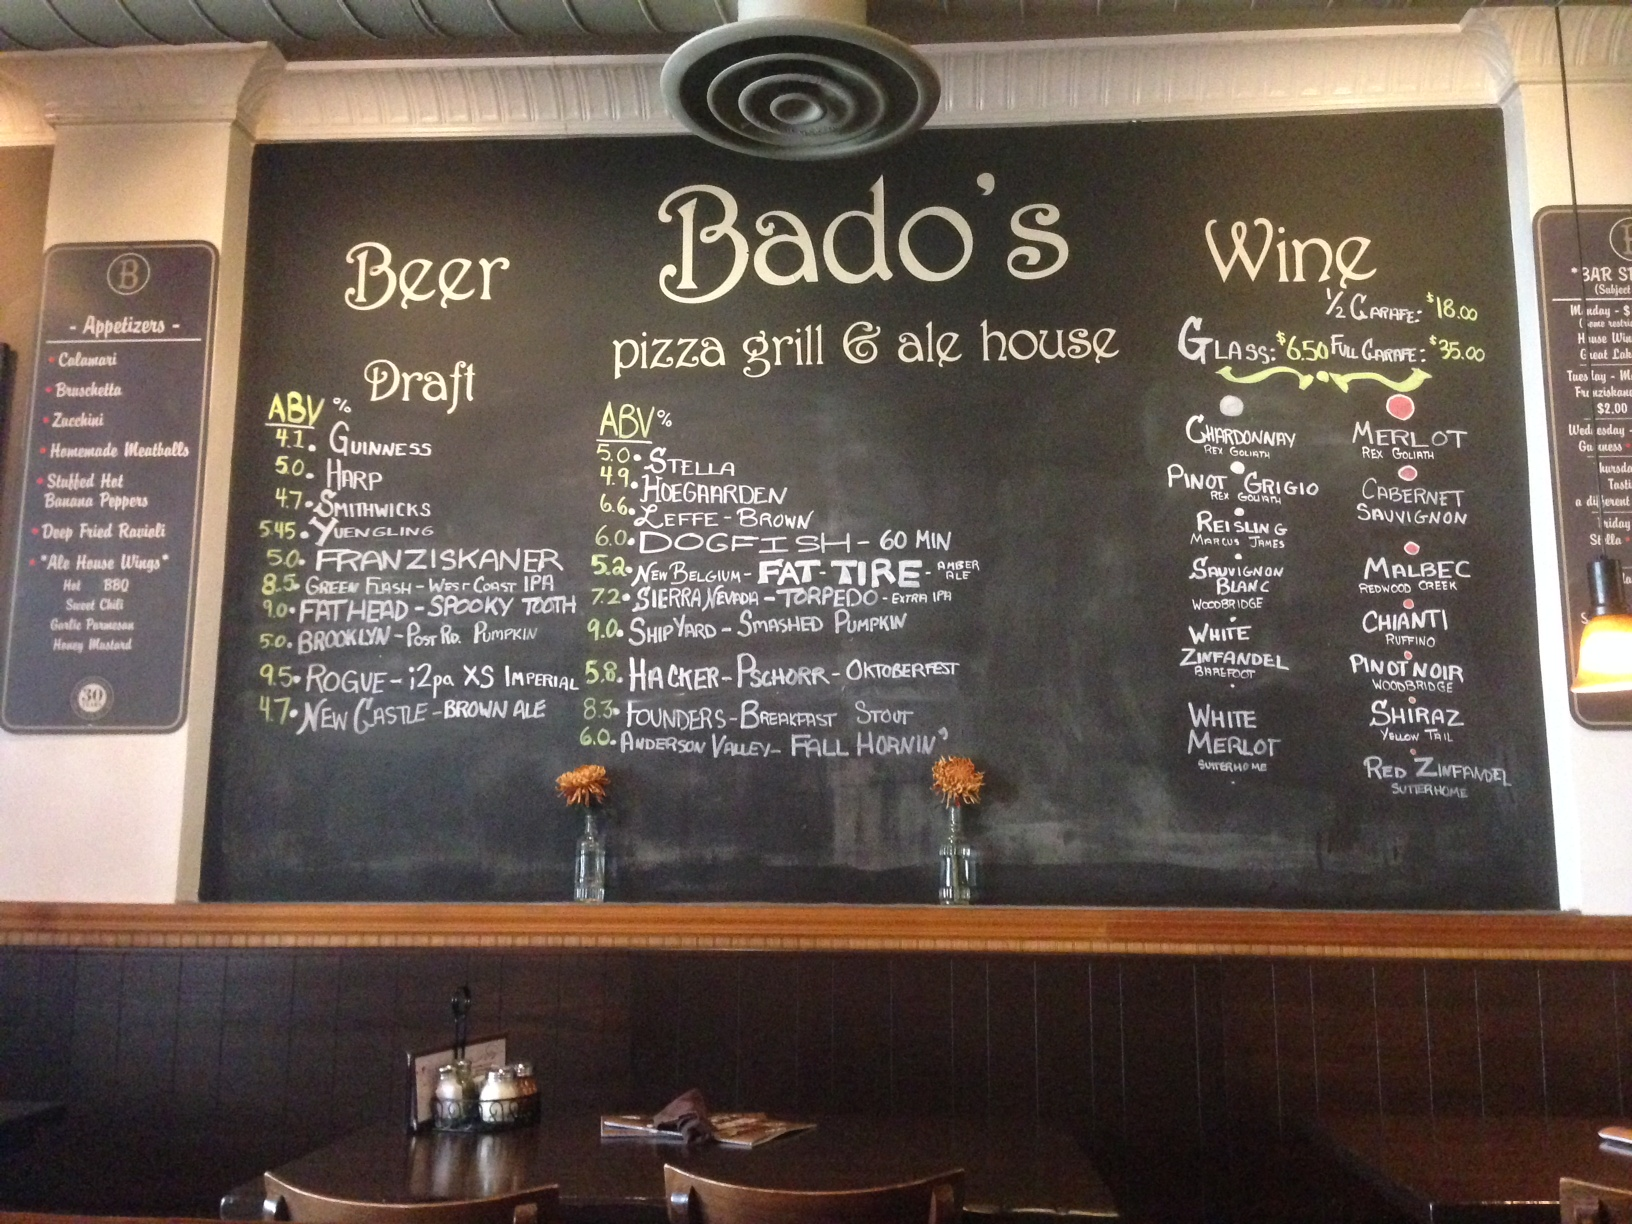 B
- Appetizers -
Calamari
Bruschetta
Zucchini
Homemade Meatballs
Stuffed Hot
Banana Peppers
Deep Fried Ravioli
"Ale House Wings"
Hot BBQ
Sweet Chili
Garlic Parmesan
Honey Mustard
30
Bado's
pizza grill & ale house
Beer
Draft
ABV %
4.1. GUINNESS
5.0. HARP
4.7. SMITHWICKS
5.45. YUENGLING
5.0. FRANZISKANER
8.5. GREEN FLASH - WEST COAST IPA
9.0. FATHEAD - SPOOKY TOOTH
5.0. BROOKLYN - POST RD. PUMPKIN
9.5. ROGUE - i2pa XS IMPERIAL
4.7. NEW CASTLE - BROWN ALE
ABV %
5.0. STELLA
4.9. HOEGAARDEN
6.6. LEFFE - BROWN
6.0. DOGFISH - 60 MIN
5.2. NEW BELGIUM - FAT-TIRE - AMBER ALE
7.2. SIERRA NEVADA - TORPEDO - EXTRA IPA
9.0. SHIPYARD - SMASHED PUMPKIN
5.8. HACKER - PSCHORR - OKTOBERFEST
8.3. FOUNDERS - BREAKFAST STOUT
6.0. ANDERSON VALLEY - FALL HORNIN'
Wine
½ CARAFE: $18.00
GLASS: $6.50 FULL CARAFE: $35.00
CHARDONNAY
REX GOLIATH
PINOT GRIGIO
REX GOLIATH
REISLING
MARCUS JAMES
SAUVIGNON
BLANC
WOODBRIDGE
WHITE
ZINFANDEL
BAREFOOT
WHITE
MERLOT
SUTTERHOME
MERLOT
REX GOLIATH
CABERNET
SAUVIGNON
MALBEC
REDWOOD CREEK
CHIANTI
RUFFINO
PINOT NOIR
WOODBRIDGE
SHIRAZ
YELLOW TAIL
RED ZINFANDEL
SUTTERHOME
"BAR
(Subject
House
Great
$2.00
a different